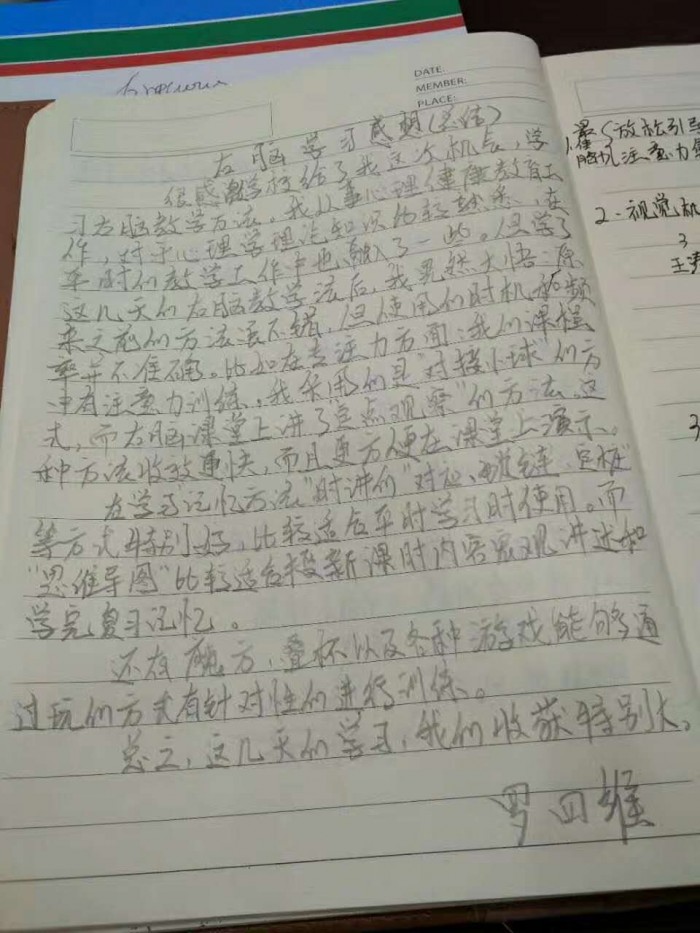 DATE:
MEMBER:
PLACE:
右脑学习感想(总结)
很感谢学校给了我这次机会,学
习右脑教学方法。我从事心理健康教育工
作,对于心理学理论知识比较熟悉,在
平时的教学工作中也融入了一些。但学了
这几天的右脑教学法后,我晃然大悟:原
来之前的方法源不错,但使用的时机和频
率并不准确。比如在专注力方面:我们课程
中有注意力训练,我采用的是"对接小球"的方
式,而右脑课堂上讲了"定点观察"的方法,这
种方法收效更快,而且更方便在课堂上演示。
在学习记忆方法"时讲的"对应、锁链、定桩"
等方式特别好,比较适合平时学习时使用。而
"思维导图"比较适合授新课时内容宏观讲述和
学完复习记忆。
还有魔方,叠杯以及各种游戏能够通
过玩的方式有针对性的进行训练。
总之,这几天的学习,我的收获特别大。
罗四维
放松引导
注意力
2.视觉机
3
王
3